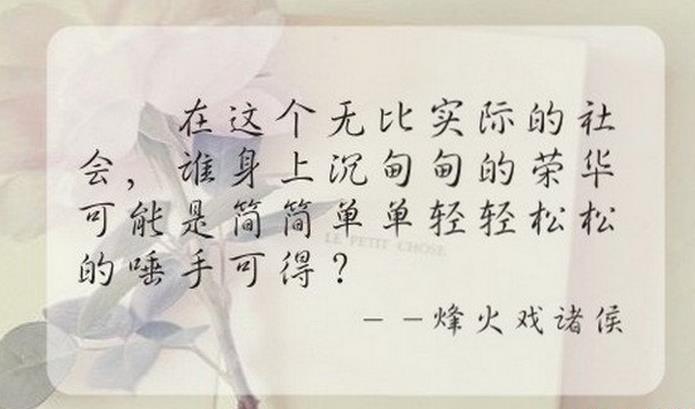 在这个无比实际的社
会，谁身上沉甸甸的荣华
可能是简简单单轻轻松松
的唾手可得？
LE PETIT CHOSE
——烽火戏诸侯